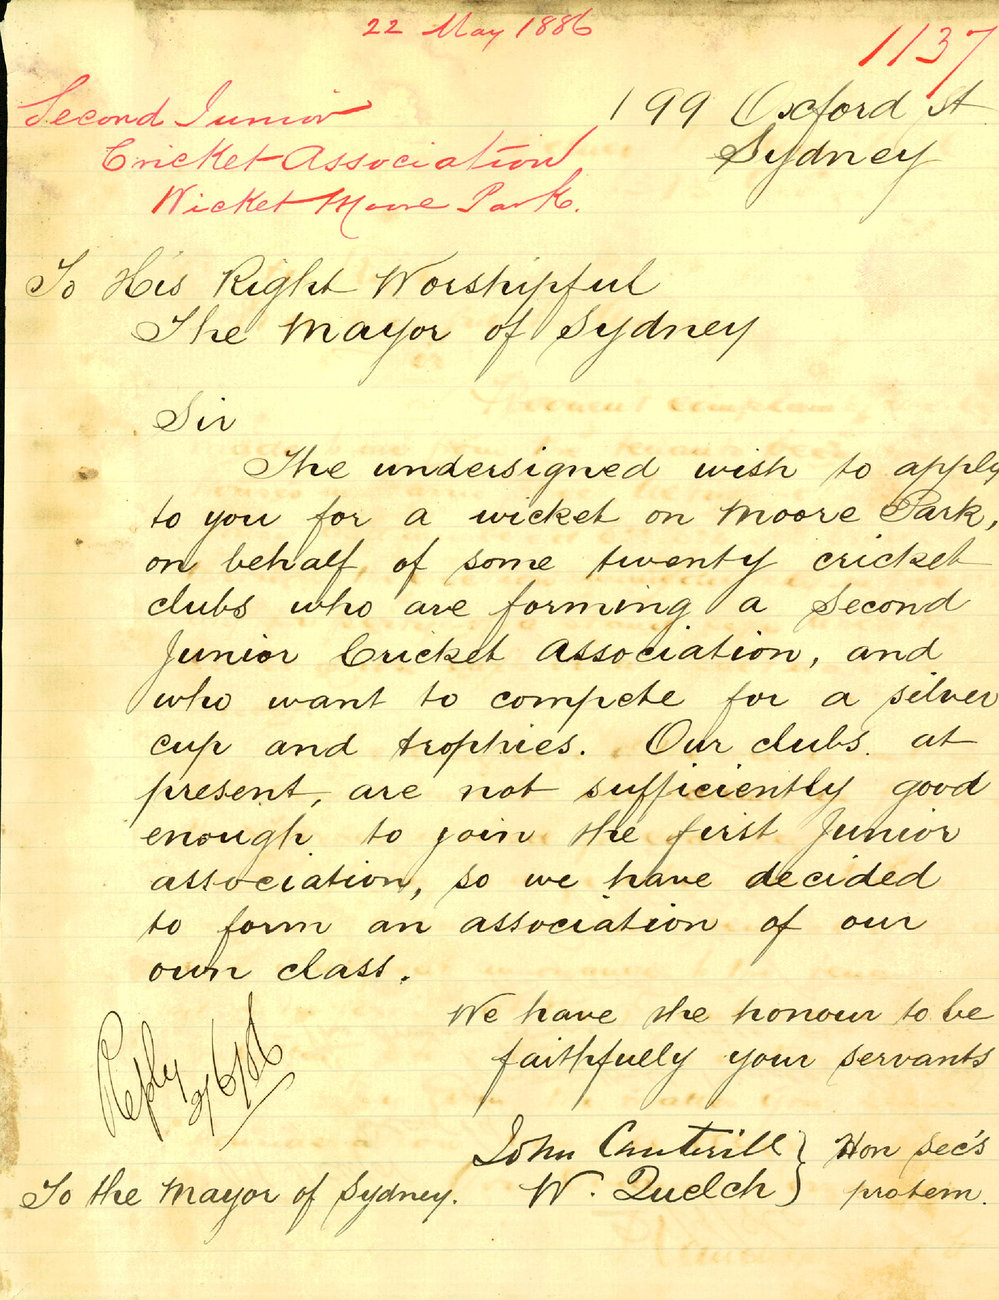 22 May 1886
1137
Second Junior
Cricket Association
Wicket Moore Park.
199 Oxford St
Sydney
To His Right Worshipful
The Mayor of Sydney
Sir
The undersigned wish to apply
to you for a wicket on Moore Park,
on behalf of some twenty cricket
clubs who are forming a Second
Junior Cricket Association, and
who want to compete for a silver
cup and trophies. Our clubs at
present, are not sufficiently good
enough to join the first Junior
association, so we have decided
to form an association of our
own class.
We have the honour to be
faithfully your servants
Reply 2/6/86
John Cautrill } Hon Sec's
W. Quelch } protem.
To the Mayor of Sydney.